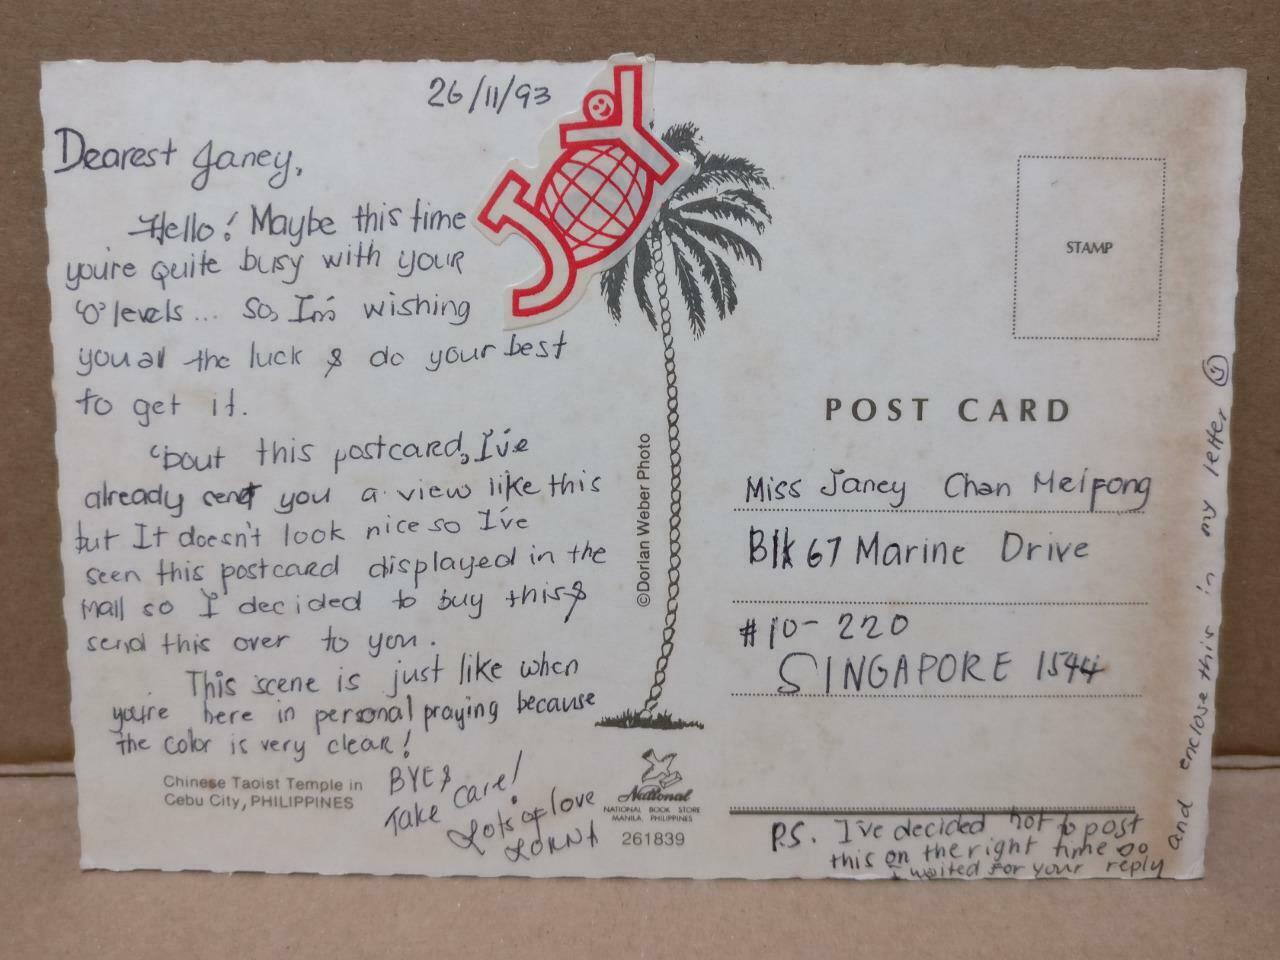 26/11/93
JOY
Dearest Janey,
Hello! Maybe this time
you're quite busy with your
'O' levels... So, I'm wishing
you all the luck & do your best
to get it.
'bout this postcard, I've
already sent you a view like this
but It doesn't look nice so I've
seen this postcard displayed in the
Mall so I decided to buy this &
send this over to you.
This scene is just like when
you're here in personal praying because
the color is very clear!
Chinese Taoist Temple in
Cebu City, PHILIPPINES
BYE &
Take Care!
Lots of love
LORNA
©Dorian Weber Photo
National
NATIONAL BOOK STORE
MANILA, PHILIPPINES
261839
STAMP
POST CARD
Miss Janey Chan Meifong
Blk 67 Marine Drive
#10-220
SINGAPORE 1544
P.S. I've decided not to post
this on the right time so
I waited for your reply
and enclose this in my letter